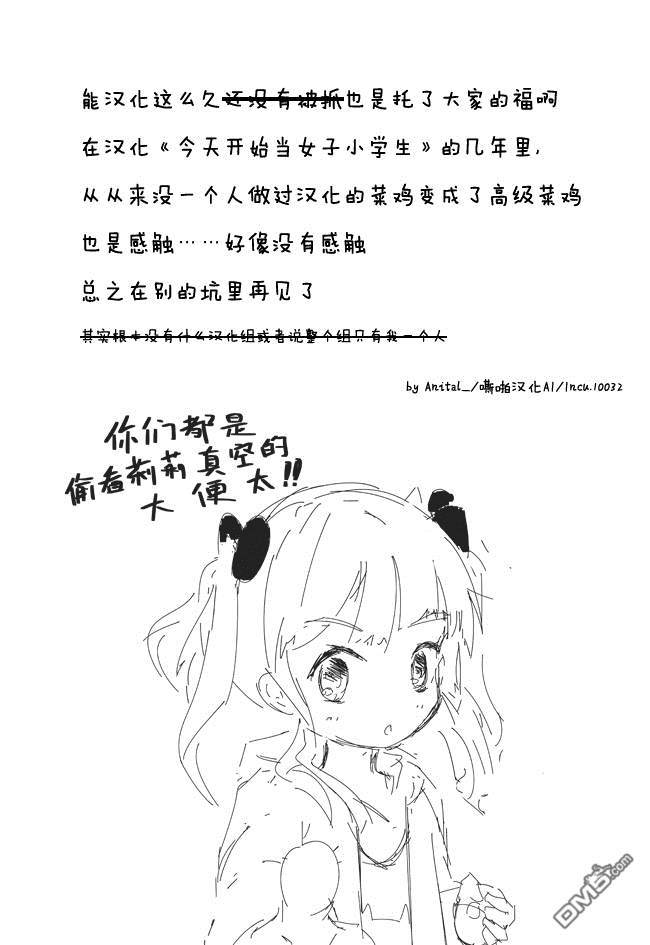 能汉化这么久还没有被抓也是托了大家的福啊
在汉化《今天开始当女子小学生》的几年里,
从从来没一个人做过汉化的菜鸡变成了高级菜鸡
也是感触……好像没有感触
总之在别的坑里再见了
其实根本没有什么汉化组或者说整个组只有我一个人
by Anital_/嘶啪汉化AI/Incu.10032
你们都是
偷看茉莉真空的
大便太!!
DM5.com